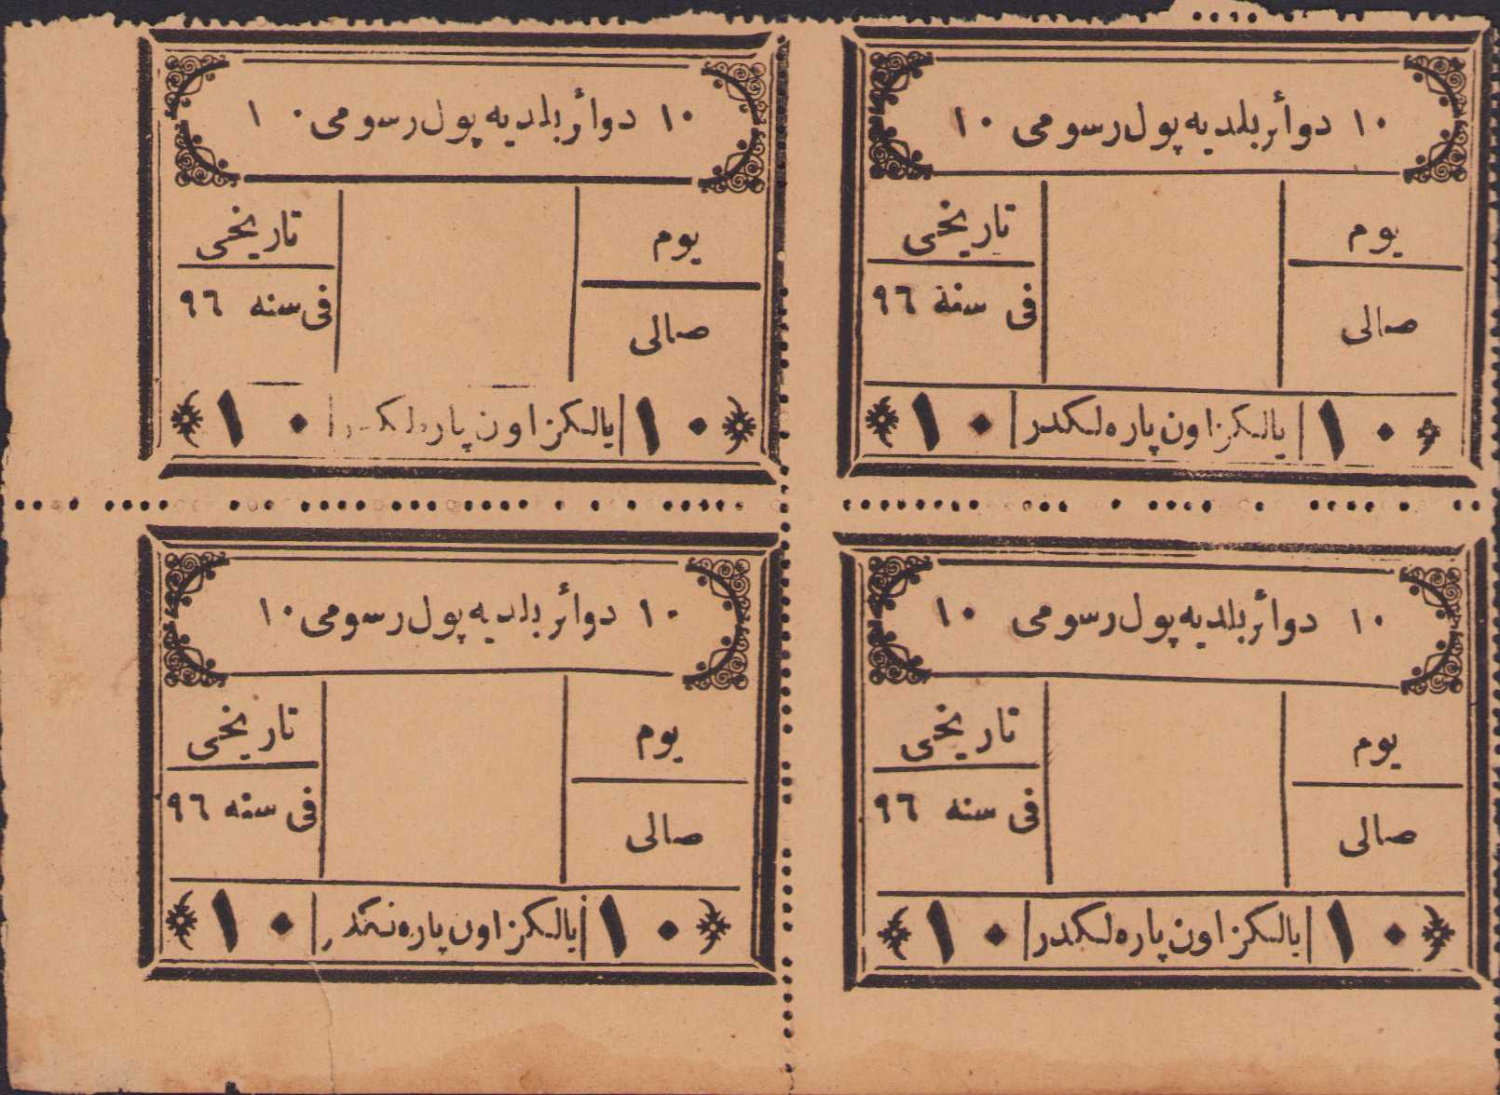 ١٠ دوائر بلديه پول رسومی ١٠
يوم
صالی
تاریخی
فی سنه ٩٦
١٠ يالكز اون پاره لكدر ١٠
١٠ دوائر بلديه پول رسومی ١٠
يوم
صالی
تاریخی
فی سنه ٩٦
١٠ يالكز اون پاره لكدر ١٠
١٠ دوائر بلديه پول رسومی ١٠
يوم
صالی
تاریخی
فی سنه ٩٦
١٠ يالكز اون پاره لكدر ١٠
١٠ دوائر بلديه پول رسومی ١٠
يوم
صالی
تاریخی
فی سنه ٩٦
١٠ يالكز اون پاره لكدر ١٠